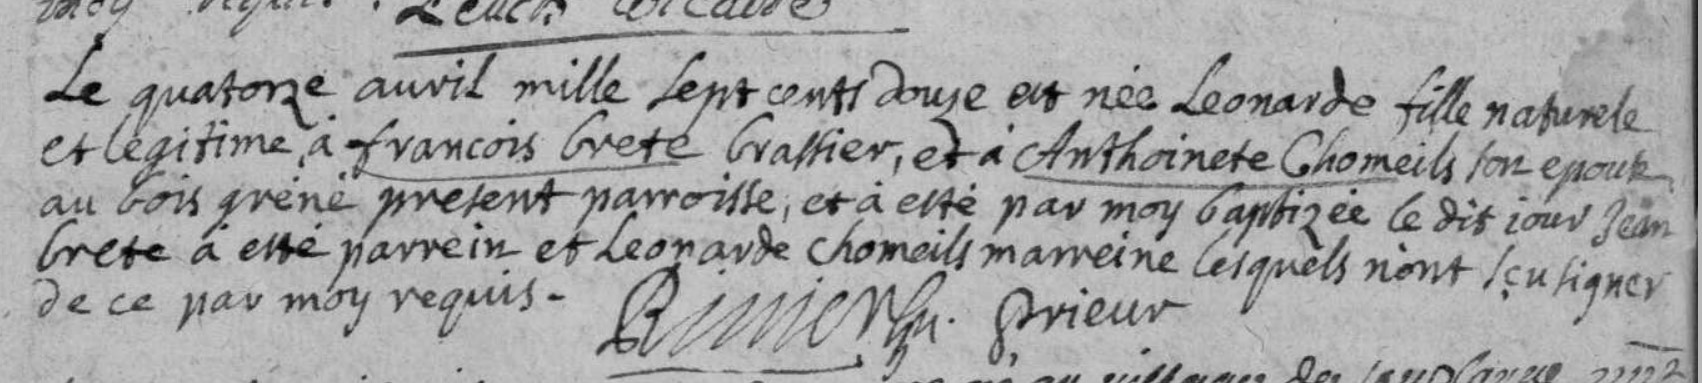 moy requis.
Le quatorze auvril mille sept cents douze est née Leonarde fille naturele
et legitime à francois brete brassier, et à Anthoinete Chomeils son epouse
au bois gréné present parroisse, et à esté par moy baptizée le dit iour Jean
brete à esté parrein et Leonarde chomeils marreine lesquels nont sçu signer
de ce par moy requis -
prieur
au village des